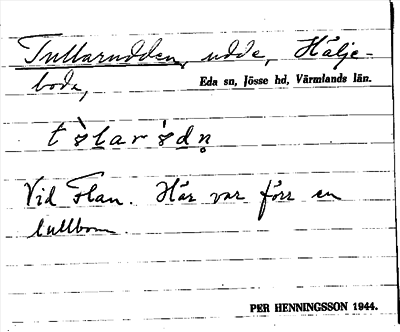 Tullarudden, udde, Hälje-
bode,
Eda sn, Jösse hd, Värmlands län.
Vid Flan. Här var förr en
tullbom.
PER HENNINGSSON 1944.